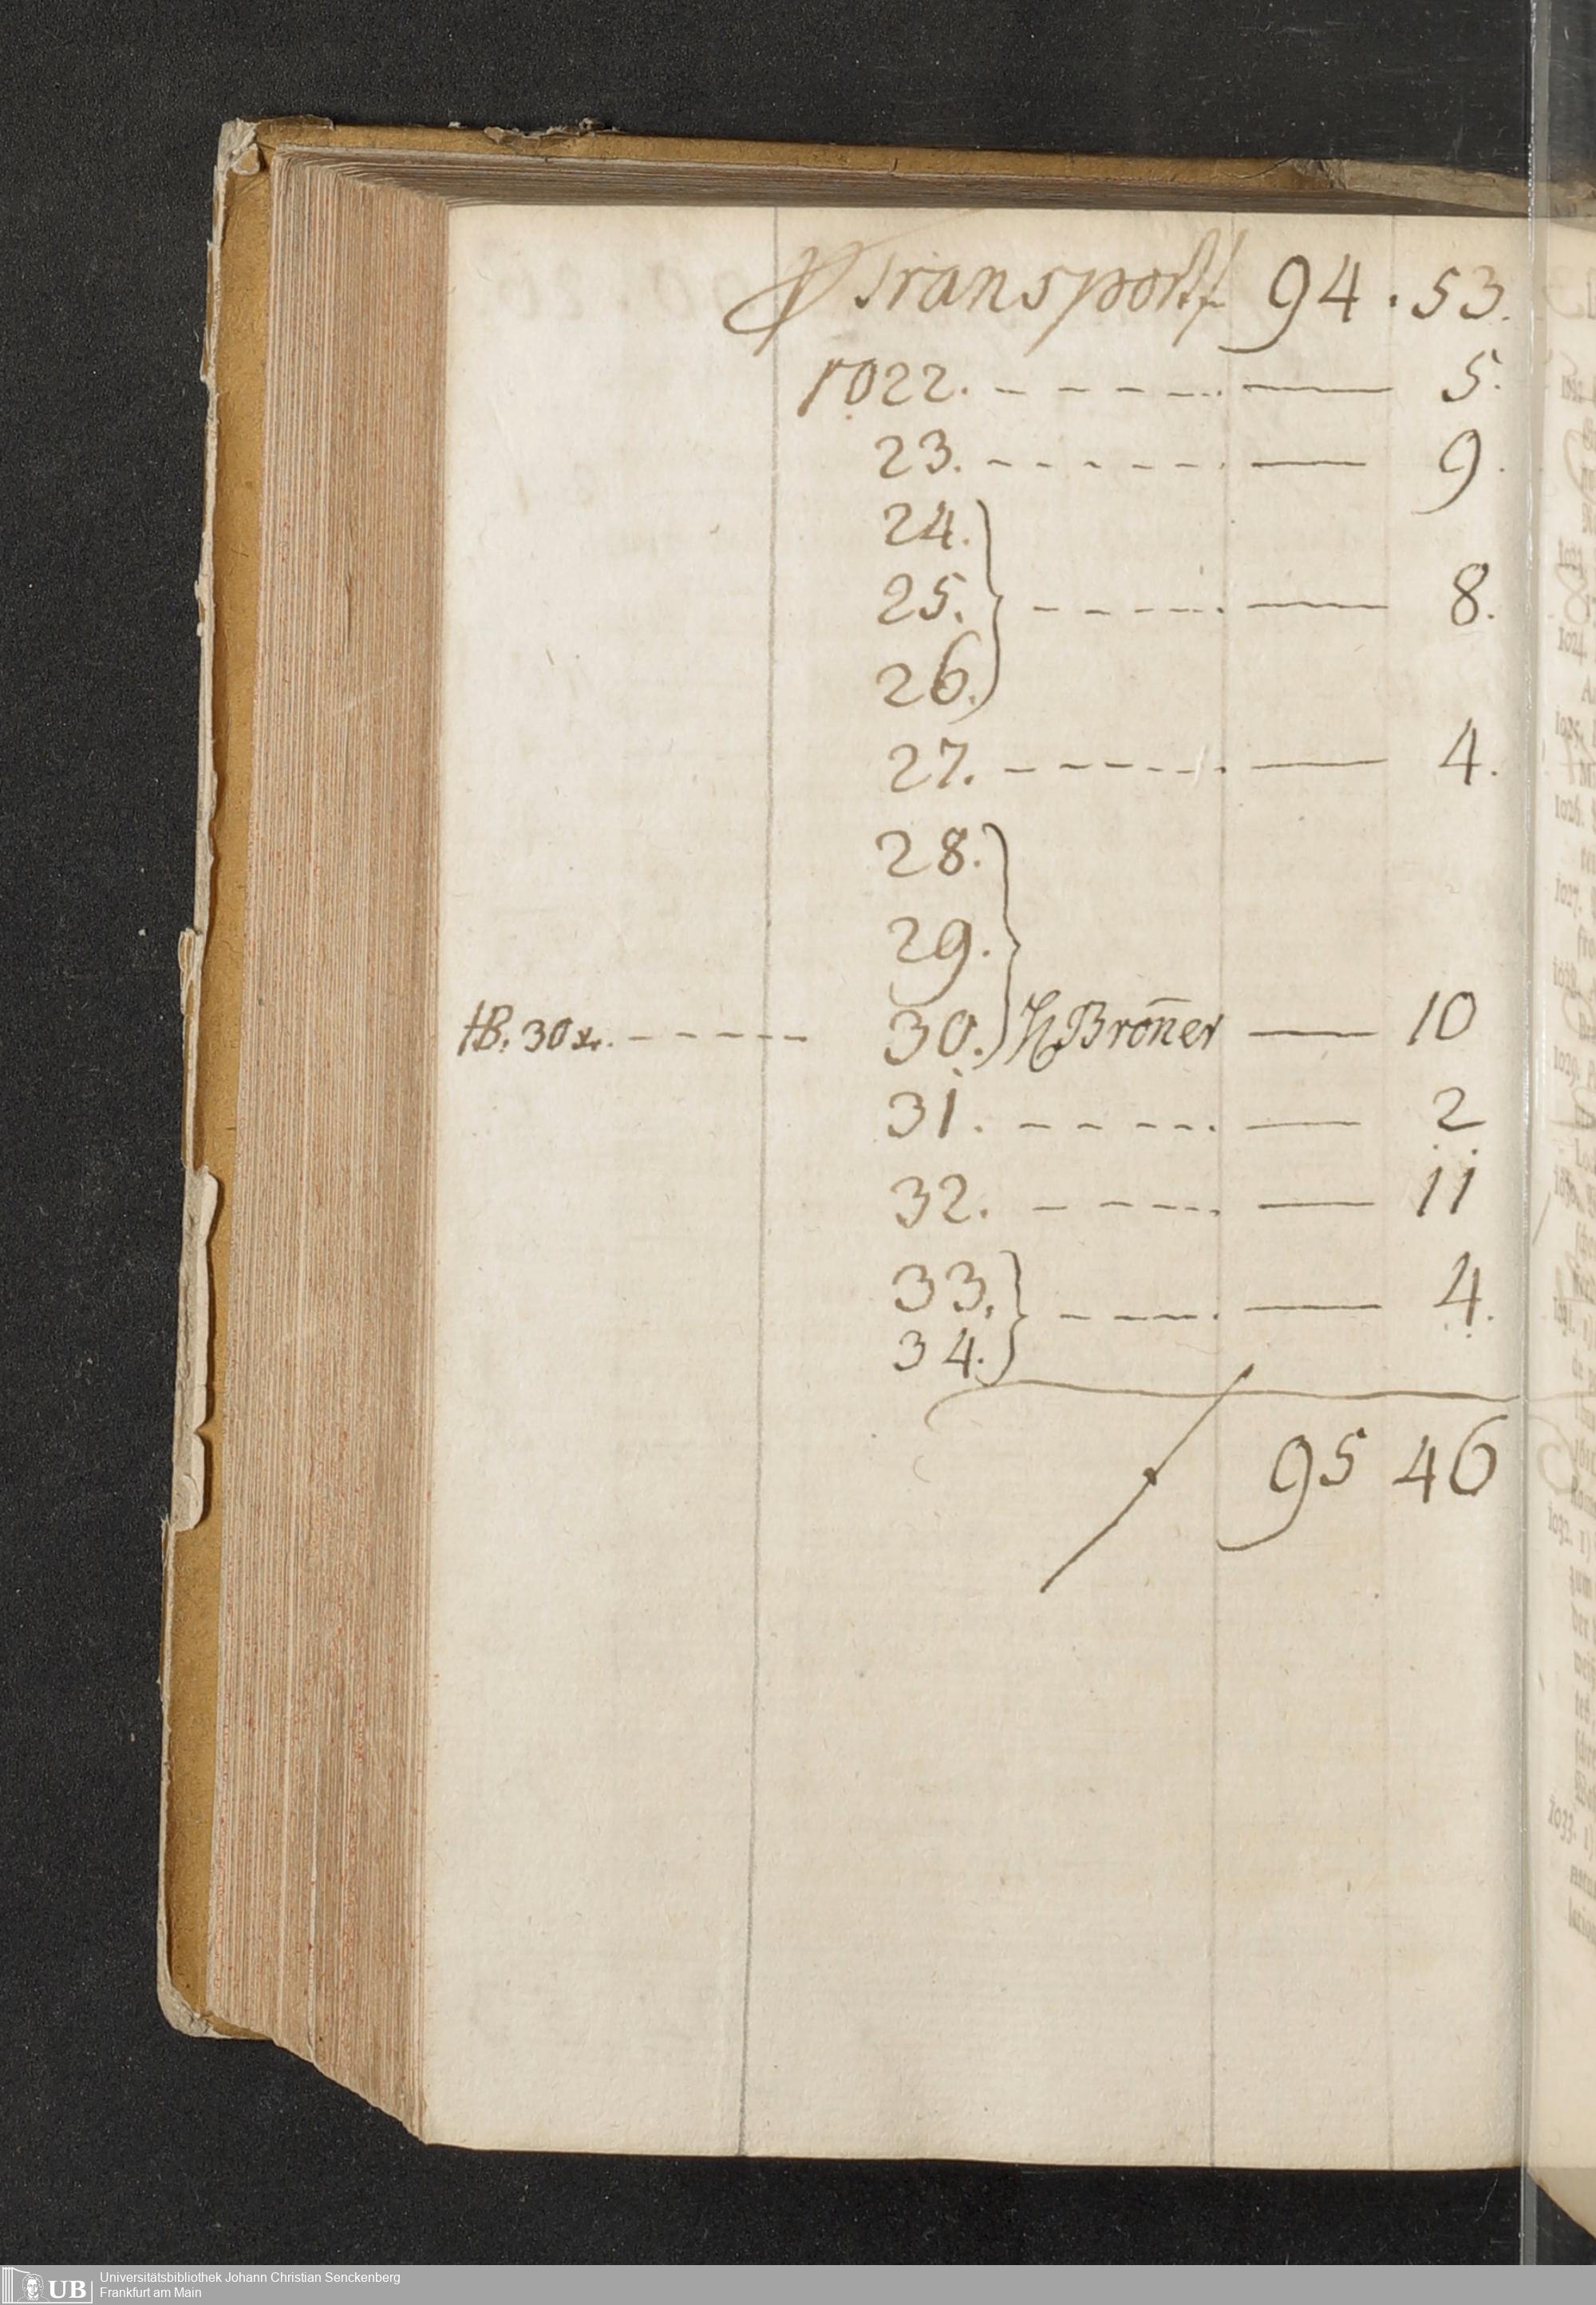 Transport 94 . 53.
1022. - - - - - - — 5.
23. - - - - - - — 9.
24.
25. - - - - - — 8.
26.
27. - - - - - - — 4.
28.
29.
HB. 30 xr. - - - - - 30. H. Broñer — 10
31. - - - - - — 2
32. - - - - - — 11
33. - - - - — 4.
34.
95 46
Universitätsbibliothek Johann Christian Senckenberg
Frankfurt am Main
UB